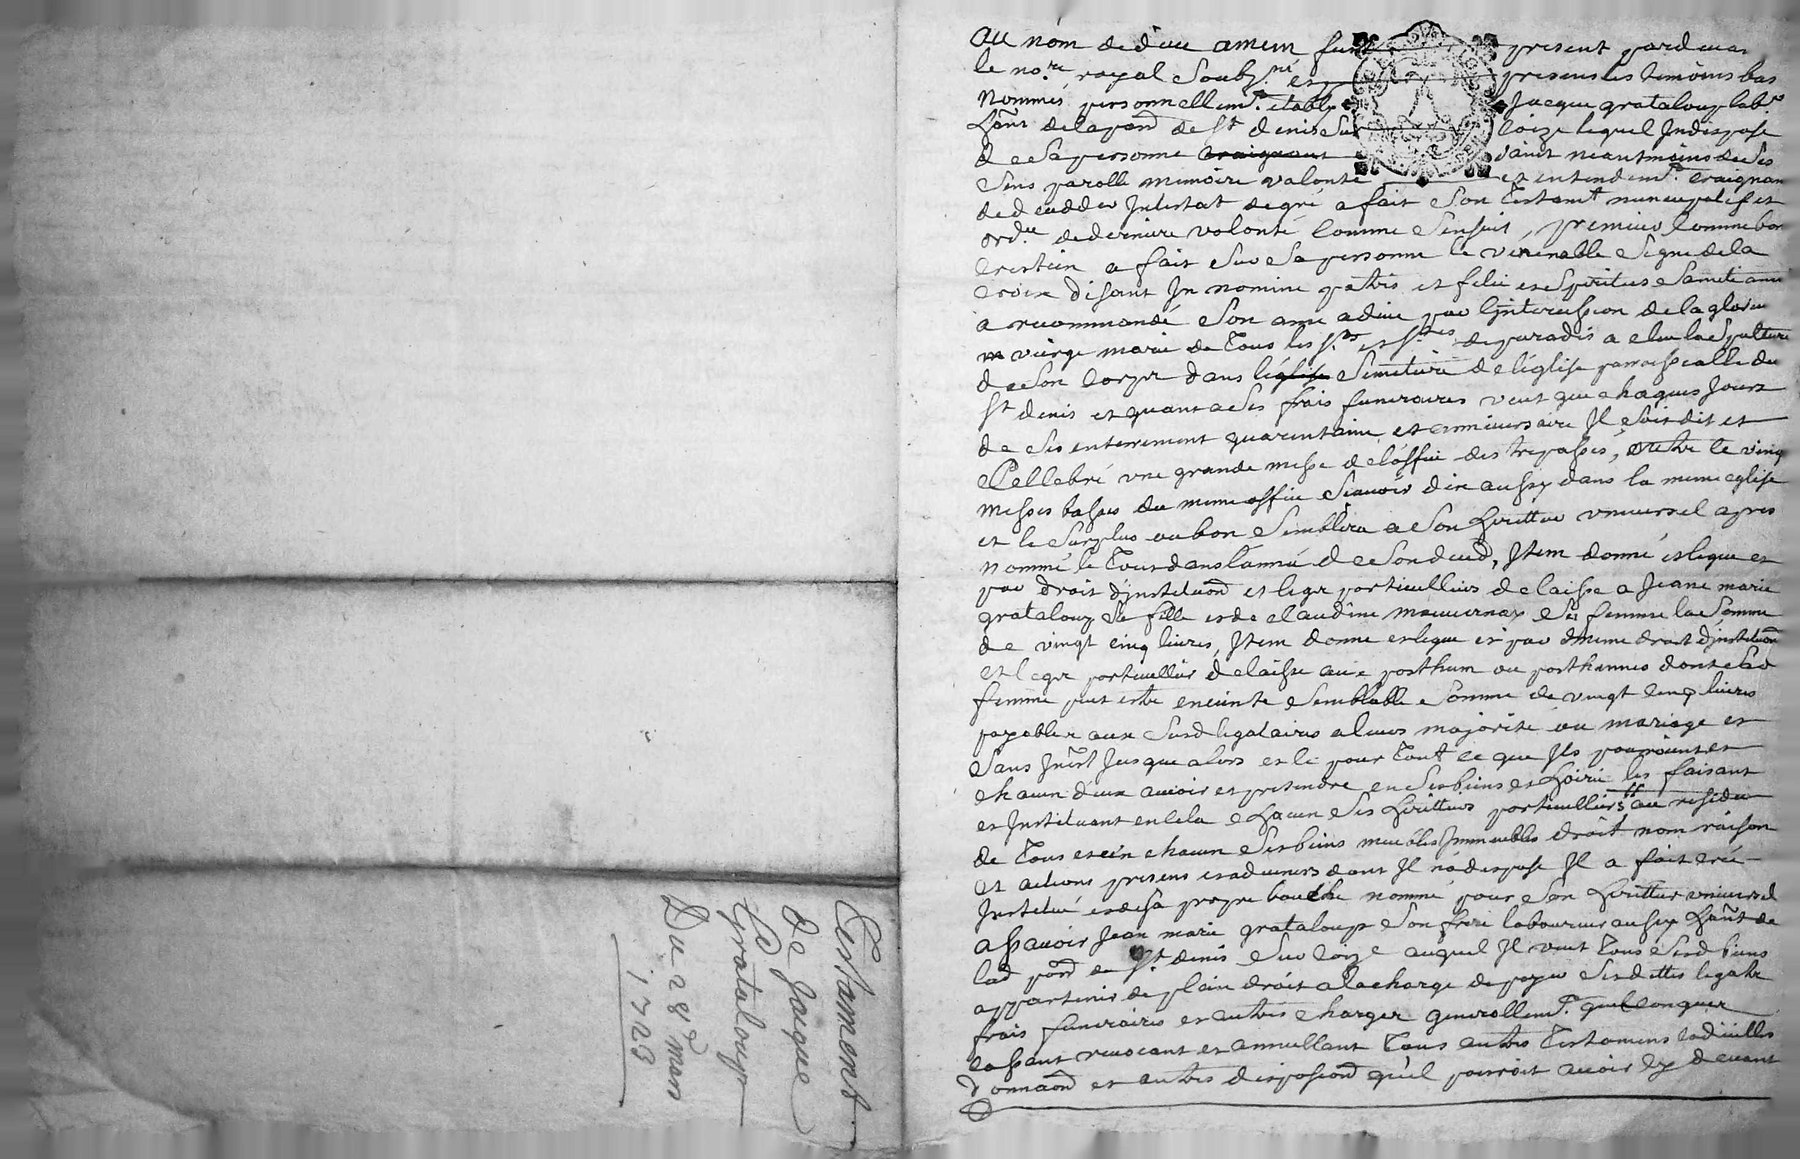 Testament
de Jacque
Grataloup
Du 28e mars
1723
Au nom de dieu amen furt present pardevant
le nore royal soubzné et presens les temoins bas
nommés personnellemt etably Jacque grataloup labr
hânt de la paroê de st denis sur loize lequel Indispose
de sa personne craignant neantmoins de ses
sens parolle memoire valonté et entendemt craignan
de decedder Intestat de gré a fait son Testamt nuncupatif et
ordre de derniere volonté comme sensuit, premier comme bon
crestien a fait sur sa personne le venerable signe de la
croix disant In nomine patris et filii et spiritus sancti amen
a recommandé son ame a dieu par lintercession de la glorieuse
vierge marie de Tous les sts et stes de paradis a elu la sepulture
de son corps dans léglise semetiere de léglise parroissialle du
st denis et quant a ses frais funeraires veut que chaques Jours
de ses enterrement quarantaine et anniversaire Il soit dit et
cellebré une grande messe de loffice des trepassés, outre le vingt
messes basses du meme office scavoir dix aussy dans la meme eglise
et le surplus ou bon semblera a son heritier universel apres
nommé le Tout dans lannée de son deced, Item donne et legue et
par droit dinstitution et legs particulliers delaisse a Jeane marie
grataloup sa fille et de claudine mauvernay sa femme la somme
de vingt cinq livres, Item donne et legue et par meme droit dinstitution
et legs particullier delaisse aux posthum ou posthumes dont lad
femme peut estre enceinte semblable somme de vingt cinq livres
payables aux susd legataires a leurs majorité ou mariage et
sans Intst Jusque alors et le pour Tout ce que Ils pourroient et
chacun deux avoir et pretendre en ses biens et hoirie les faisant
et Instituant en cela chacun ses heritiers particulliers au residu
de Tous et un chacun ses biens meubles Immeubles droit nom raison
et actions presens et advenirs dont Il na dispose Il a fait créé
Institué et de sa propre bouche nommé pour son heritier universel
assavoir Jean marie grataloup son frere laboureur aussy hânt de
lad paroê de st denis sur loize auquel Il veut Tous sesd biens
appartenir de plain droit a la charge de payer ses dettes legats
frais funeraires et autres charges generallemt quelconques
cassant revocant et annullant Tous autres Testamens codicilles
donnaôn et autres disposiôn quil pourroit avoir cy devant